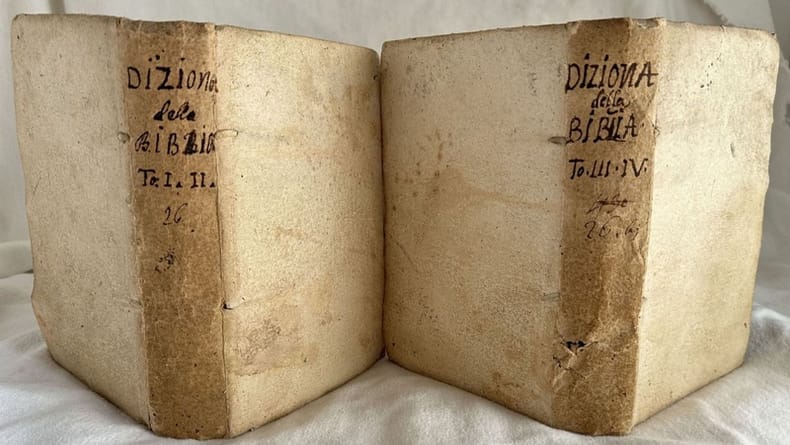 DiZiona
della
BiBLIA
To. I. II.
26.
DiZiONA
della
BiBLIA
To. III. IV.
26.